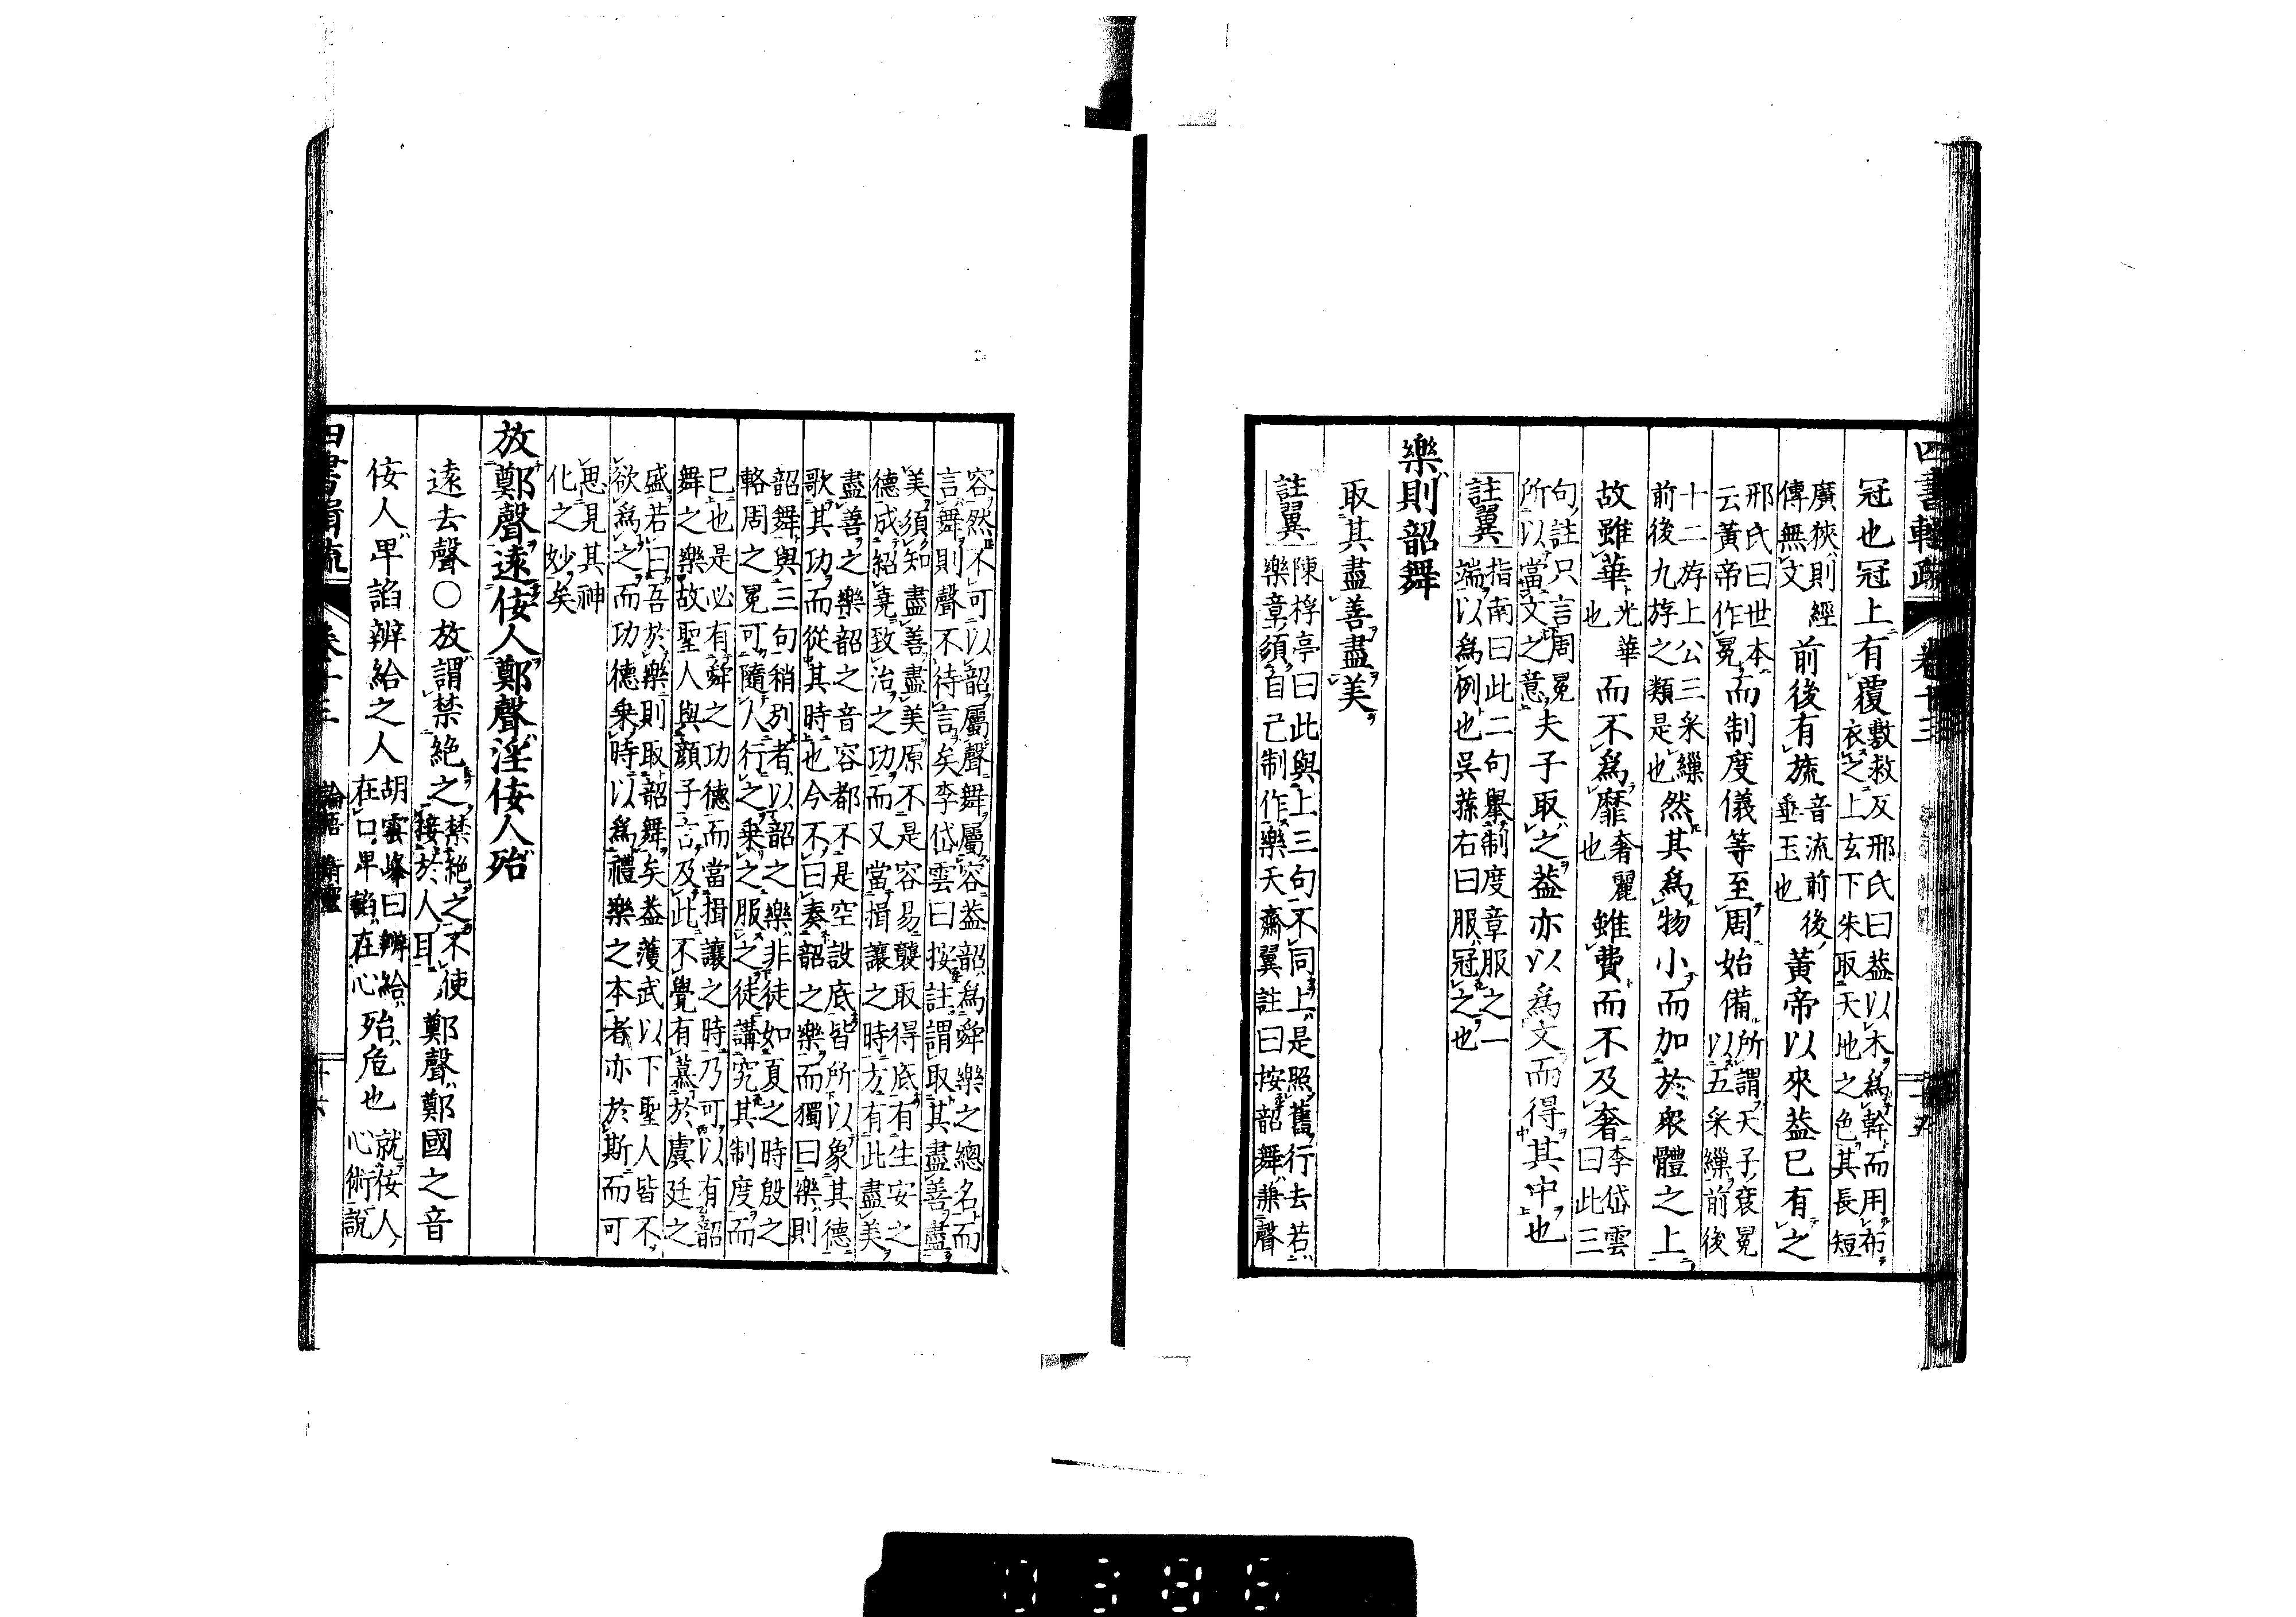 四書輯疏 卷十三
冠也冠上有覆敷救反邢氏曰葢以木爲幹而用布
衣之上玄下朱取天地之色其長短
廣狹則經
傳無文
前後有旒音流前後
垂玉也
黃帝以來葢已有之
邢氏曰世本
云黃帝作冕
而制度儀等至周始備所謂天子袞冕
以五采繅前後
十二斿上公三采繅
前後九斿之類是也
然其爲物小而加於衆體之上
故雖華光華
也
而不爲靡奢麗
也
雖費而不及奢李岱雲
曰此三
句註只言周冕
所以當文之意
夫子取之葢亦以爲文而得其中也
註翼
指南曰此二句舉制度章服之一
端以爲例也吳蓀右曰服冠之也
樂則韶舞
取其盡善盡美
註翼
陳桴亭曰此與上三句不同上是照舊行去若
樂章須自己制作樂天齋翼註曰按韶舞兼聲
容然不可以韶屬聲舞屬容葢韶爲舜樂之總名而
言舞則聲不待言矣李岱雲曰按註謂取其盡善盡
美須知盡善盡美原不是容易襲取得底有生安之
德成紹堯致治之功而又當揖讓之時方有此盡美
盡善之樂韶之音容都不是空設底皆所以象其德
歌其功而從其時也今不曰奏韶之樂而獨曰樂則
韶舞與三句稍別者以韶之樂非徒如夏之時殷之
輅周之冕可隨人行之乘之服之徒講究其制度而
已也是必有舜之功德而當揖讓之時乃可以有韶
舞之樂故聖人與顏子言及此不覺有慕於虞廷之
盛若曰吾於樂則取韶舞矣葢濩武以下聖人皆不
欲爲之而功德乘時以爲禮樂之本者亦於斯而可
思見其神
化之妙矣
放鄭聲遠佞人鄭聲淫佞人殆
遠去聲○放謂禁絕之禁絕之不使
接於人耳
鄭聲鄭國之音
佞人卑諂辨給之人胡雲峰曰辨給
在口卑諂在心
殆危也就佞人
心術說
四書輯疏 卷十三 論語 衛靈 十六